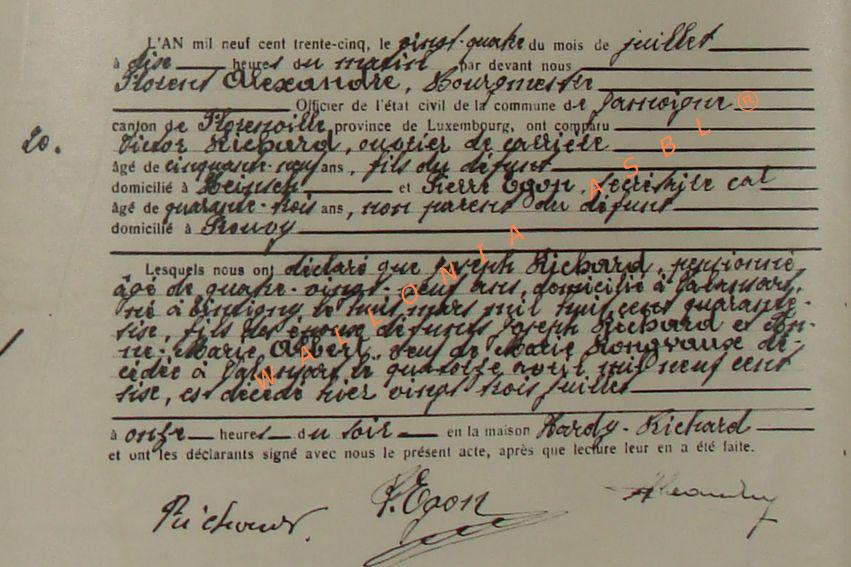 L'AN mil neuf cent trente-cinq, le vingt-quatre du mois de juillet
à dix heures du matin, par devant nous
Florent Alexandre, Bourgmestre
Officier de l'état civil de la commune de Jamoigne
canton de Florenville, province de Luxembourg, ont comparu
Victor Richard, ouvrier de carrière
âgé de cinquante-neuf ans, fils du défunt
domicilié à Heinsch et Pierre Egon, secrétaire cal
âgé de quarante-trois ans, non parent du défunt
domicilié à Rouvoy
Lesquels nous ont déclaré que Joseph Richard, pensionné
âgé de quatre-vingt-neuf ans, domicilié à
né à le huit mars mil huit cent quarante-
six, fils des époux défunts Joseph Richard et An-
ne-Marie Albert, veuf de Marie Rongvaux dé-
cédée à le quatorze avril mil neuf cent
six, est décédé hier vingt trois juillet
à onze heures du soir en la maison Hardy-Richard
et ont les déclarants signé avec nous le présent acte, après que lecture leur en a été faite.
20.
Richard. P. Egon Alexandre
WALLONIA ASBL ®